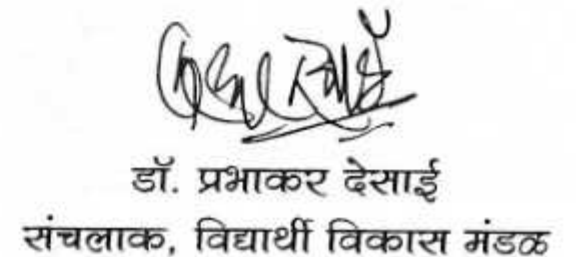 डॉ. प्रभाकर देसाई
संचलाक, विद्यार्थी विकास मंडळ